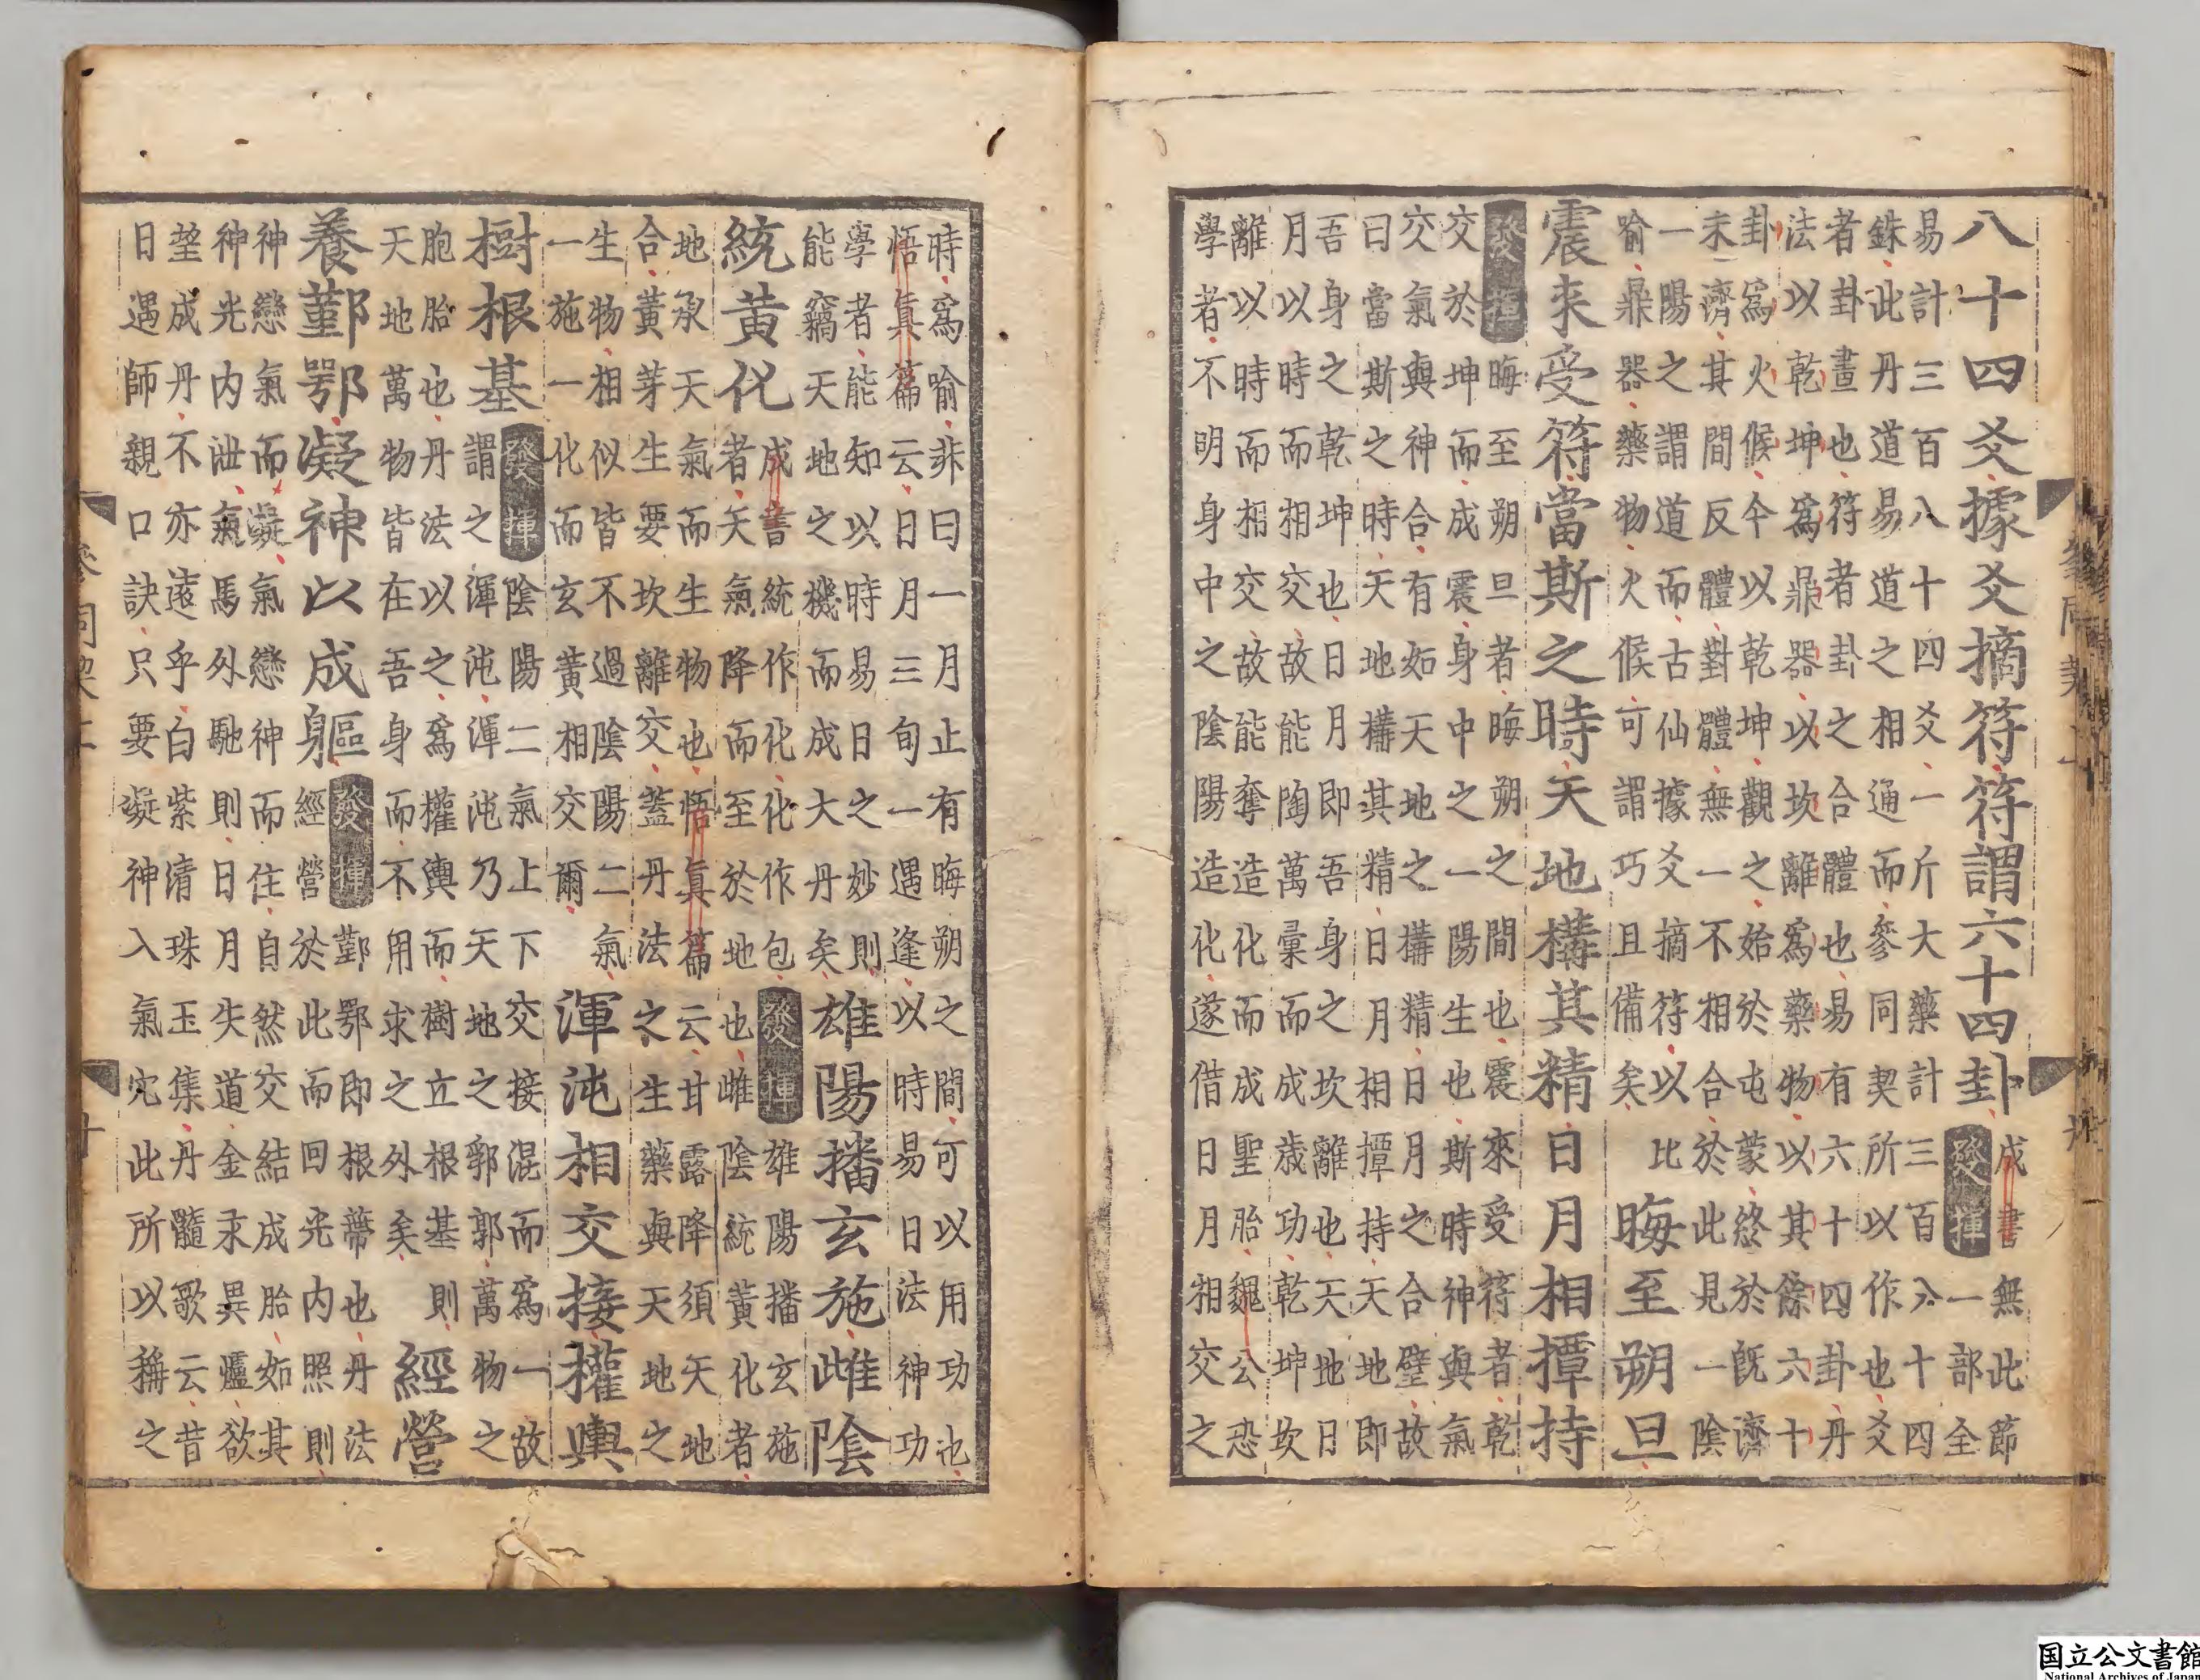 八十四爻據爻摘符符謂六十四卦
成書無此節
發揮一部全
易計三百八十四爻一斤大藥計三百八十四
銖此丹道易道之相通而參同契所以作也爻
者卦畫也符者卦之合體也易有六十四卦丹
法以乾坤爲鼎器以坎離爲藥物以其餘六十
卦爲火候今以乾坤觀之始於屯蒙終於旣濟
未濟其間反體對體無一不相合於此見一陰
一陽之謂道而古仙據爻摘符以比
喻鼎器藥物火候可謂巧且備矣
晦至朔旦
震來受符當斯之時天地構其精日月相撢持
發揮
晦至朔旦者晦朔之間也震來受符者乾
交於坤而成震身中之一陽生也斯時神與氣
交氣與神合有如天地之構精日月之合璧故
曰當斯之時天地構其精日月相撢持天地即
吾身之乾坤也日月即吾身之坎離也天地日
月以時而相交故能陶萬彙而成歲功乾坤坎
離以時而相交故能奪造化而成聖胎魏公恐
學者不明身中之陰陽造化遂借日月相交之
時爲喻非曰一月止有晦朔之間可以用功也
悟真篇云日月三旬一遇逢以時易日法神功
學者能知以時易日之妙則
能竊天地之機而成大丹矣
雄陽播玄施雌陰
統黃化
成書統作化化作包發揮雄陽播玄施
者天氣降而至於地也雌陰統黃化者
地承天氣而生物也悟真篇云甘露降須天地
合黃芽生要坎離交蓋丹法之生藥與天地之
生物相似皆不過陰陽二氣
一施一化而玄黃相交爾
渾沌相交接權輿
樹根基
發揮
陰陽二氣上下交接混而爲一故
謂之渾沌渾沌乃天地之郛郭萬物之
胞胎也丹法以之爲權輿而樹立根基則
天地萬物皆在吾身而不用求之外矣
經營
養鄞鄂凝神以成軀
發揮
鄞鄂即根蒂也丹法
經營於此而回光内照則
神戀氣而凝氣戀神而住自然交結成胎如其
神光内泄氣馬外馳則日月失道金汞異爐欲
望成丹不亦遠乎白紫清珠玉集丹髓歌云昔
日遇師親口訣只要凝神入氣穴此所以稱之
国立公文書館
National Archives of Japan